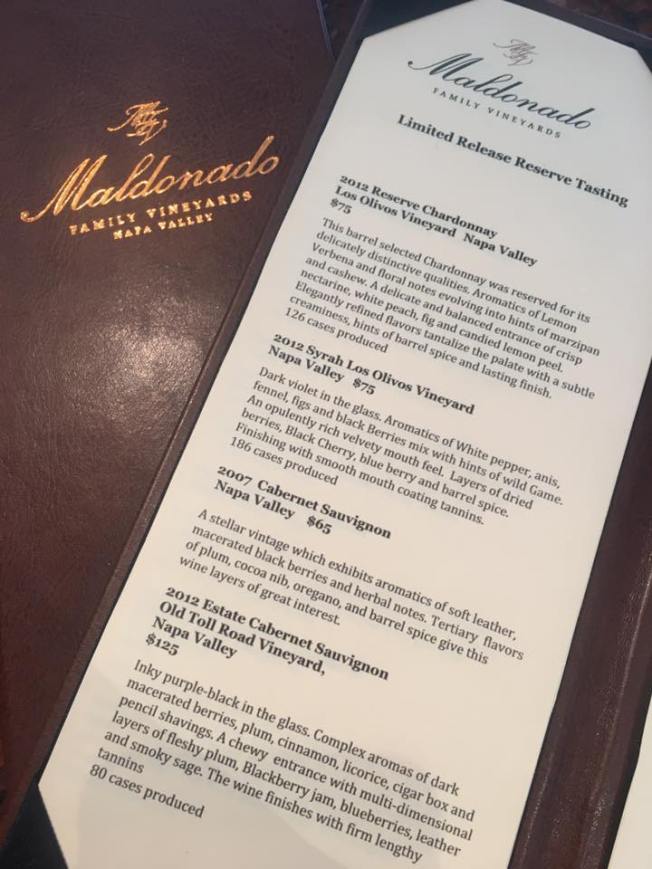 Maldonado
FAMILY VINEYARDS
NAPA VALLEY
Maldonado
FAMILY VINEYARDS
Limited Release Reserve Tasting
2012 Reserve Chardonnay
Los Olivos Vineyard Napa Valley
$75
This barrel selected Chardonnay was reserved for its
delicately distinctive qualities. Aromatics of Lemon
Verbena and floral notes evolving into hints of marzipan
and cashew. A delicate and balanced entrance of crisp
nectarine, white peach, fig and candied lemon peel.
Elegantly refined flavors tantalize the palate with a subtle
creaminess, hints of barrel spice and lasting finish.
126 cases produced
2012 Syrah Los Olivos Vineyard
Napa Valley $75
Dark violet in the glass. Aromatics of White pepper, anis,
fennel, figs and black Berries mix with hints of wild Game.
An opulently rich velvety mouth feel. Layers of dried
berries, Black Cherry, blue berry and barrel spice.
Finishing with smooth mouth coating tannins.
186 cases produced
2007 Cabernet Sauvignon
Napa Valley $65
A stellar vintage which exhibits aromatics of soft leather,
macerated black berries and herbal notes. Tertiary flavors
of plum, cocoa nib, oregano, and barrel spice give this
wine layers of great interest.
2012 Estate Cabernet Sauvignon
Old Toll Road Vineyard,
Napa Valley
$125
Inky purple-black in the glass. Complex aromas of dark
macerated berries, plum, cinnamon, licorice, cigar box and
pencil shavings. A chewy entrance with multi-dimensional
layers of fleshy plum, Blackberry jam, blueberries, leather
and smoky sage. The wine finishes with firm lengthy
tannins
80 cases produced